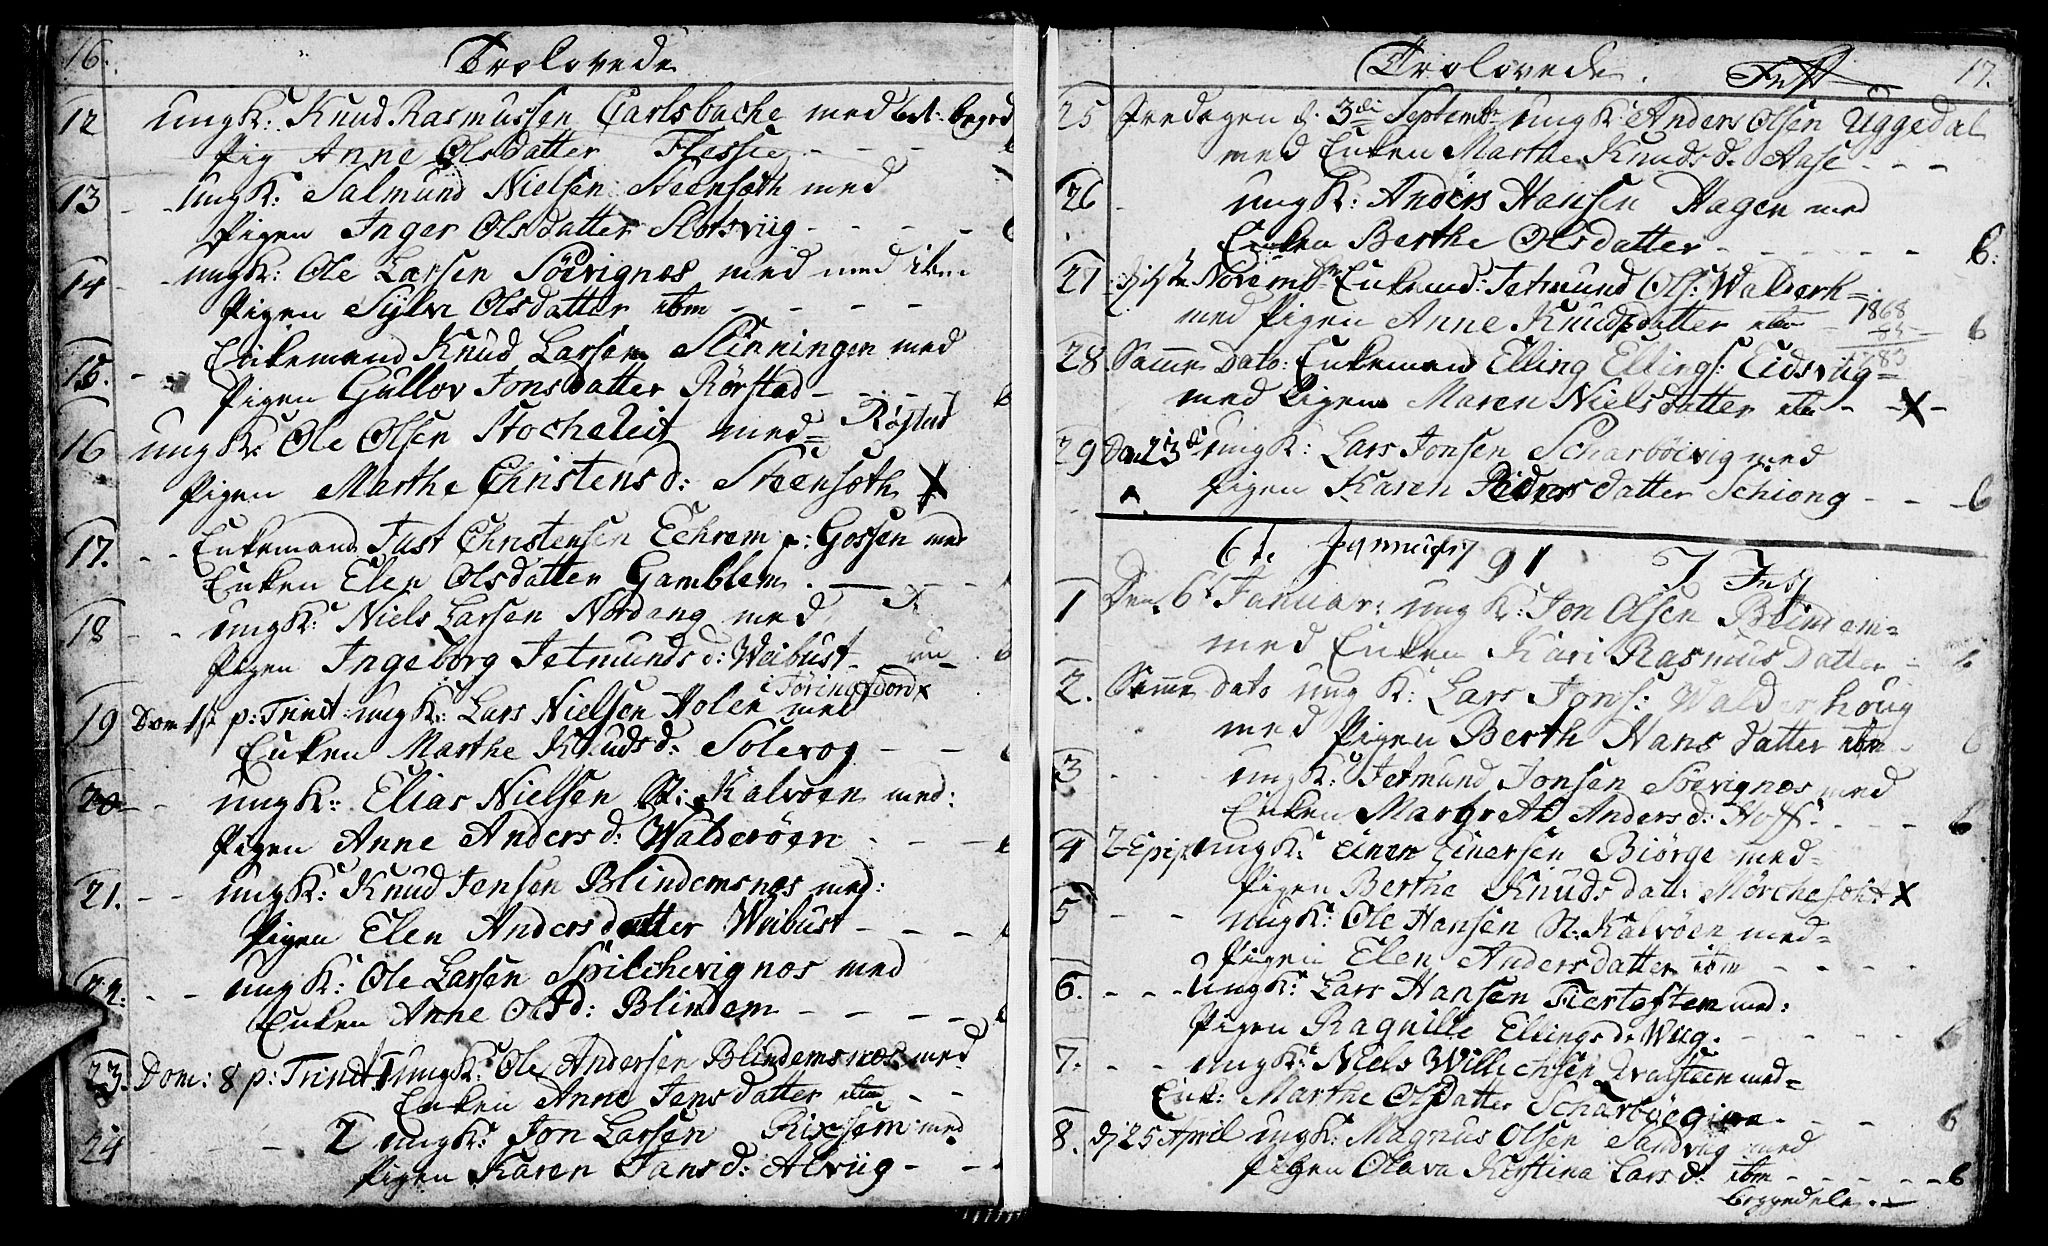 16.
Trolovede
12 ungK: Knud Rasmussen Carlsbache med
Pig Anne Olsdatter Flessie
13 ungK: Salmund Nielsen Steensøth med
Pigen Inger Olsdatter Slotsviig
14 ungK: Ole Larsen Söevignæs med
Pigen Sylvi Olsdatter ibm
15. Enkemand Knud Larsen Slinningen med
Pigen Gullov Jonsdatter Rörstad
16 ungK: Ole Olsen Stocheleit med Røjstad
Pigen Marthe Christensd: Steensøth X
17. Enkemand Just Christensen Echrem p: Gossen med
Enken Elen Olsdatter Gamblem
18 ungK: Niels Larsen Nordang med
Pigen Ingeborg Jetmundsd: Weibust
i Jöringfiord x
19 Dom 1st p: Trinit ungK: Lars Nielsen Holen med
Enken Marthe Knudsd: Solevog
20 ungK: Elias Nielsen St: Kalvöen med:
Pigen Anne Andersd: Walderöen
21. ungK: Knud Jensen Blindemsnæs med:
Pigen Elen Andersdatter Weibust
22. ungK: Ole Larsen Spilchevignæs med
Enken Anne Olsd: Blindem
23. Dom: 8 p: Trinit 1 ungK: Ole Andersen Blindemsnæs med
Enken Anne Jensdatter ibm
24 2 ungK: Jon Larsen Rixsem med
Pigen Karen Jansd: Alviig
17.
Trolovede. Fest
25 Fredagen d. 3di Septembr ungK: Anders Olsen Uggedal
med Enken Marthe Knudsd. Aase
26 ungK: Anders Hansen Hagen med
Enken Berthe Olsdatter 6.
27 Novembr Enkemd: Jetmund Ols: Walderh=
med Pigen Anne Knudsdatter ibm 6
1868
85
1783
28 Samme Dato: Enkemand Elling Ellings: Eidsviig=
med Pigen Maren Nielsdatter ibm X
29 Den 23d ungK: Lars Jonsen Scharböevig med
Pigen Karen Pedersdatter Schiong 6
6te Januarij 91 Fest
1 Den 6t Januar: ungK: Jon Olsen Blindem=
med Enken Kari Rasmusdatter
2. Samme dato ungK: Lars Jons: Walderhoug
med Pigen Berth Hansdatter ibm 6
3 ungK: Jetmund Jonsen Söevignæs med
Enken Margret Andersd: Hoff 6
4 2-Epip ungK: Einer Einersen Biörge med=
Pigen Berthe Knudsdatt: Mörchesæt X
5 ungK: Ole Hansen St: Kalvöen med=
Pigen Elen Andersdatter ibm
6. ungK: Lars Hansen Fiertoften med:
Pigen Ragnille Ellingsd: Wiig.
7. ungK: Niels Willichsen Dralsteen med=
Enk: Marthe Olsdatter 6
8. d 25 April ungK: Magnus Olsen Sandvig med
Pigen Olava Kirstina Larsd: ibm 6
beggedele.